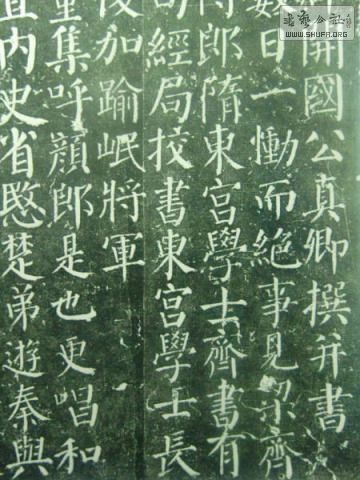 開國公真卿撰并書
日一慟而絕事見梁齊
侍郎隋東宮學士齊書有
司經局校書東宮學士長
加踰岷將軍
集呼顏郎是也更唱和
直內史省愍楚弟遊秦與
WWW.SHUFA.ORG